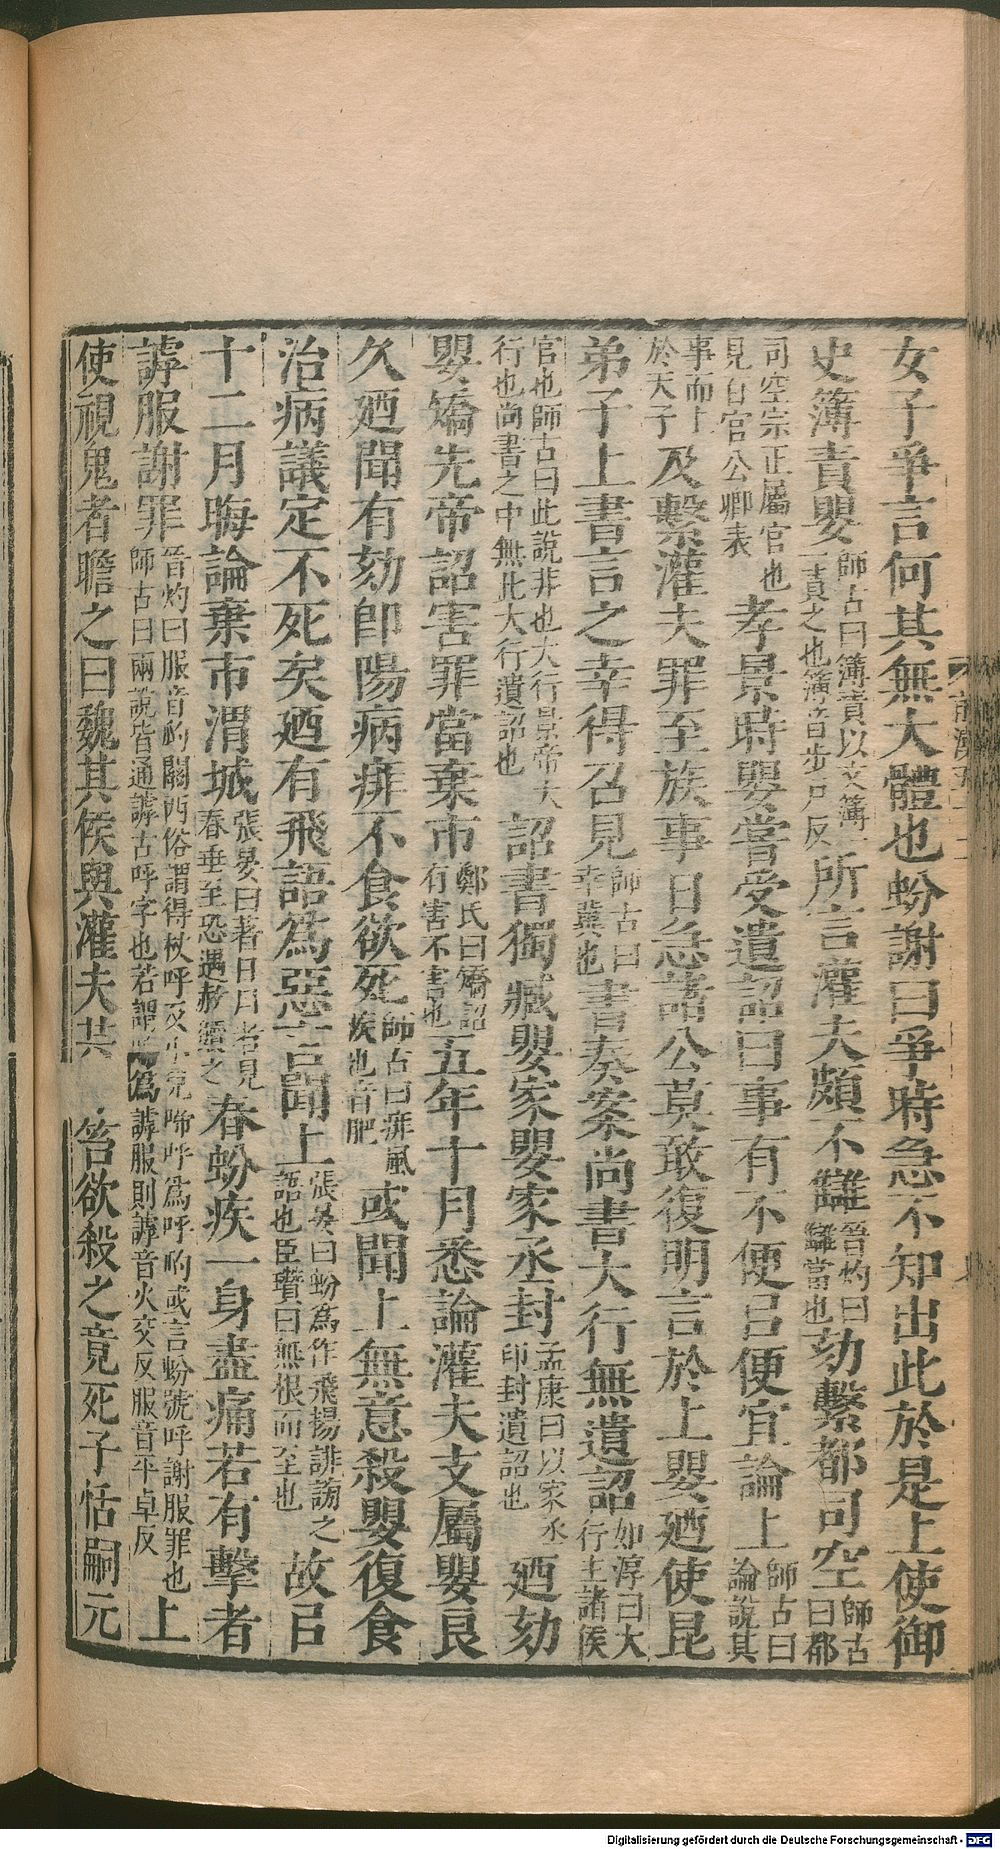 女子爭言何其無大體也蚡謝曰爭時急不知出此於是上使御
史簿責嬰師古曰簿責以文簿一一責之也簿音步戶反所言灌夫頗不讎晉灼曰讎當也劾繫都司空師古曰都
司空宗正屬官也見百官公卿表孝景時嬰嘗受遺詔曰事有不便㠯便宜論上師古曰論說其
事而上於天子及繫灌夫罪至族事日急諸公莫敢復明言於上嬰廼使昆
弟子上書言之幸得召見師古曰幸冀也書奏案尚書大行無遺詔如淳曰大行主諸侯
官也師古曰此說非也大行景帝大行也尚書之中無此大行遺詔也詔書獨臧嬰家嬰家丞封孟康曰以家丞印封遺詔也廼劾
嬰矯先帝詔害罪當棄市鄭氏曰矯詔有害不害也五年十月悉論灌夫支屬嬰良
久廼聞有劾卽陽病痱不食欲死師古曰痱風疾也音肥或聞上無意殺嬰復食
治病議定不死矣廼有飛語爲惡言聞上張晏曰蚡爲作飛揚誹謗之語也臣瓚曰無根而至也故㠯
十二月晦論棄市渭城張晏曰著日月者見春垂至恐遇赦贖之春蚡疾一身盡痛若有擊者
謼服謝罪晉灼曰服音瓝關西俗謂得杖呼及小兒啼呼爲呼瓝或言蚡號呼謝服罪也師古曰兩說皆通謼古呼字也若謂爲謼服則謼音火交反服音平卓反上
使視鬼者瞻之曰魏其侯與灌夫共笞欲殺之竟死子恬嗣元
Digitalisierung gefördert durch die Deutsche Forschungsgemeinschaft - DFG